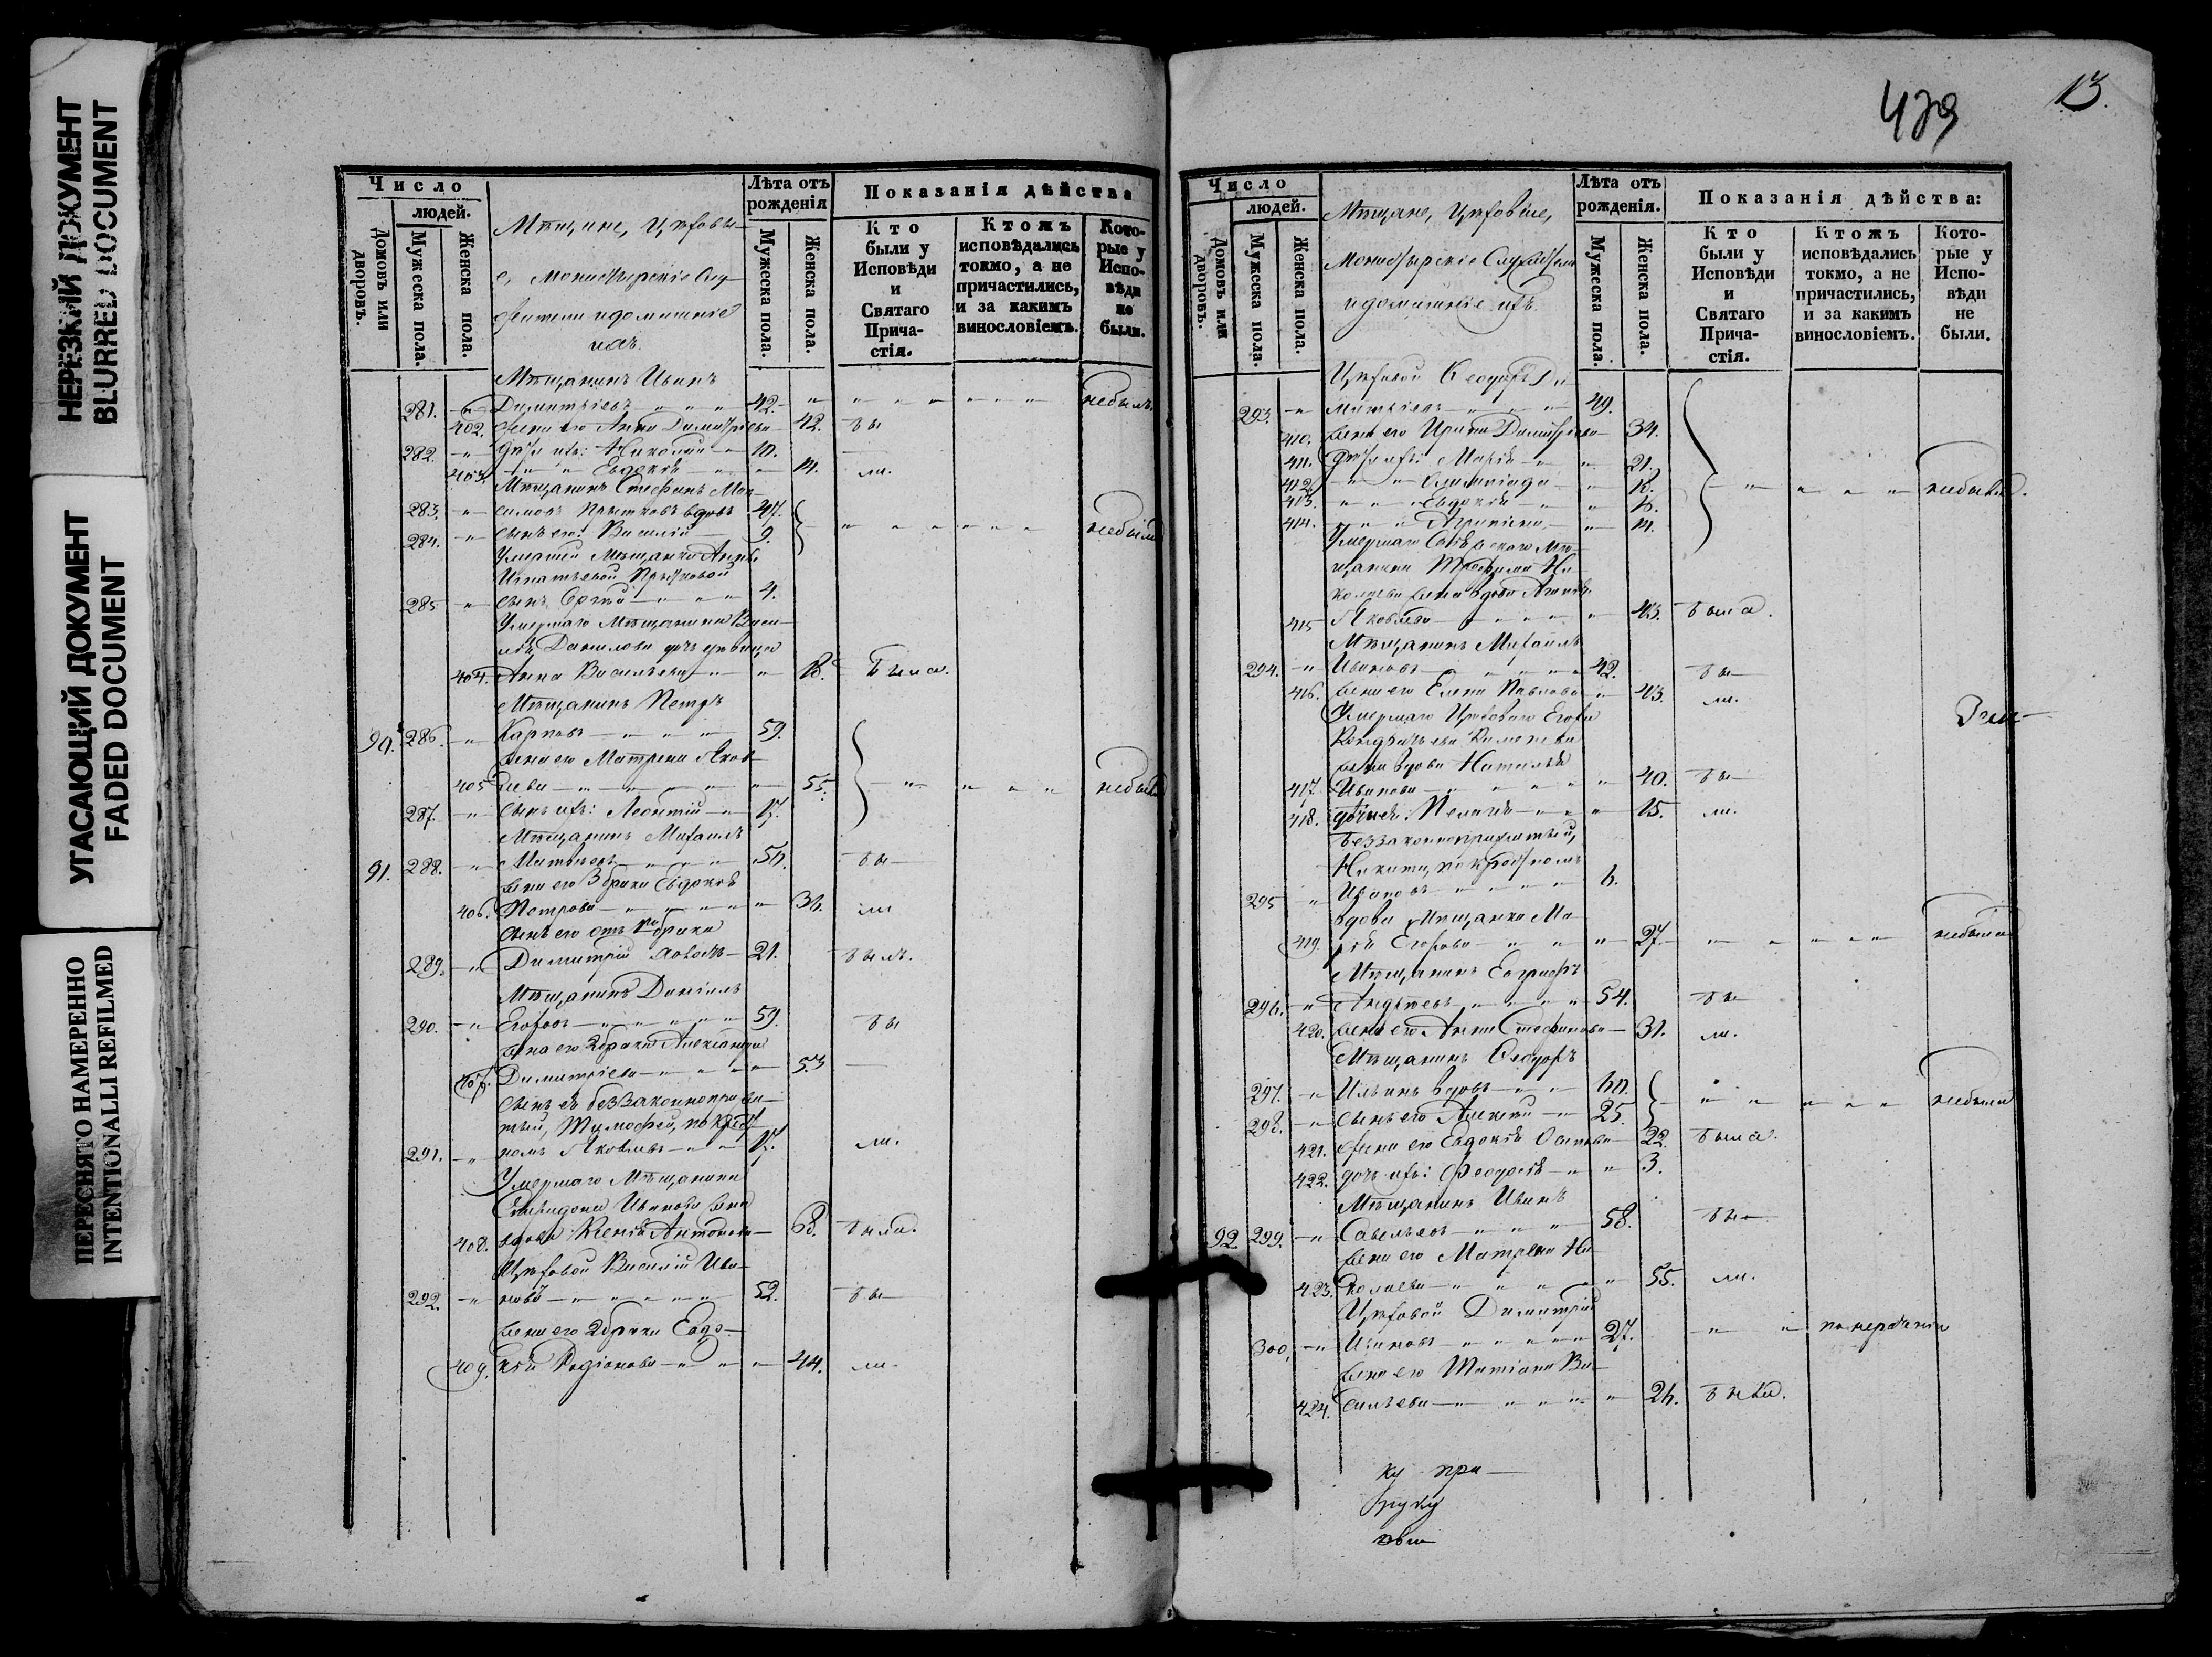 НЕРЕЗКИЙ ДОКУМЕНТ
BLURRED DOCUMENT
УГАСАЮЩИЙ ДОКУМЕНТ
FADED DOCUMENT
ПЕРЕСНЯТО НАМЕРЕННО
INTENTIONALLI REFILMED
Число
людей.
Домовъ или дворовъ.
Мужеска пола.
Женска пола.
Мѣщане, Цеховы-
е, Монастырскіе Слу-
жители и домашніе
ихъ.
Лѣта отъ рожденія
Мужеска пола.
Женска пола.
Показанія дѣйства
Кто были у Исповѣди и Святаго Причастія.
Ктожъ исповѣдались токмо, а не причастились, и за какимъ винословіемъ.
Которые у Исповѣди не были.
Мѣщанинъ Иванъ
281. Димитріевъ 42. небылъ
402. жена его Анна Димитріева 42. бы
282. дѣти ихъ: Николай 10.
403. Евдокія 14. ли.
Мѣщанинъ Стефанъ Мак-
283. симовъ вдовъ 47.
284. сынъ его: Василій 9. небыли
Умершей Мѣщанки Анны
Игнатьевой
285 сынъ Сергій 4.
Умершаго Мѣщанина Васи-
лія Данилова дочь
404. Анна Васильева 18. была.
Мѣщанинъ Петръ
90. 286. Карповъ 59.
жена его Матрена Яков-
405 лева 55. небыли
287. сынъ ихъ: Леонтій 17.
Мѣщанинъ Михаилъ
91. 288. Матвѣевъ 50. бы
жена его 3 брака Евдокія
406. Петрова 36. ли
сынъ его отъ 1го брака
289. Димитрій 21. былъ.
Мѣщанинъ Даніилъ
290. Егоровъ 59. бы
жена его 2 брака Александра
407. Димитріева 53
сынъ ея беззаконноприжи-
тый, Тимофей, по крест-
291. номъ Яковлевъ 17. ли.
Умершаго Мѣщанина
Спиридона Иванова жена
408. вдова Ксенія Антонова 68. была.
Цеховой Василій Ива-
292. новъ 52. бы
жена его 2 брака Евдо-
409. кія Родіонова 44. ли.
479
13.
Число
людей.
Домовъ или дворовъ.
Мужеска пола.
Женска пола.
Мѣщане, Цеховые,
Монастырскіе Служители
и домашніе ихъ.
Лѣта отъ рожденія.
Мужеска пола.
Женска пола.
Показанія дѣйства:
Кто были у Исповѣди и Святаго Причастія.
Ктожъ исповѣдались токмо, а не причастились, и за какимъ винословіемъ.
Которые у Исповѣди не были.
Цеховой Ѳеодоръ Ди-
293. митріевъ 49.
410. жена его Ирина Димитріева 34.
411. дѣти ихъ: Марія 21.
412. Олимпіада 18. небыли.
413. Евдокія 16.
414. 14.
Умершаго Мѣ-
щанина Трофима Ни-
колаева жена вдова
415 Яковлева 43. была.
Мѣщанинъ Михаилъ
294. Ивановъ 42. бы
416. жена его Елена Павлова 43. ли.
Умершаго Цеховаго Егора
жена вдова Наталія
417. Иванова 40. бы
418. дочь ея: Пелагія 15. ли.
Беззаконноприжитый,
Никита, по крестномъ
295 Ивановъ 6.
вдова Мѣщанка Ма-
419. рія Егорова 27. небыла
Мѣщанинъ Евграфъ
296. Андреевъ 54. бы
420. жена его Анна Стефанова 31. ли.
Мѣщанинъ Ѳеодоръ
297. Ильинъ вдовъ 60.
298. сынъ его Алексій 25. небыли
421. жена его Евдокія Осипова 22. была.
422. дочь ихъ: Ѳеодосія 3.
Мѣщанинъ Иванъ
92. 299. Савельевъ 58. бы
жена его Матрена Ни-
423. колаева 55. ли.
Цеховой Димитрій
300. Ивановъ 27. по нераченію
жена его Татіана Ва-
424. сильева 26. была.
ку при-
руку